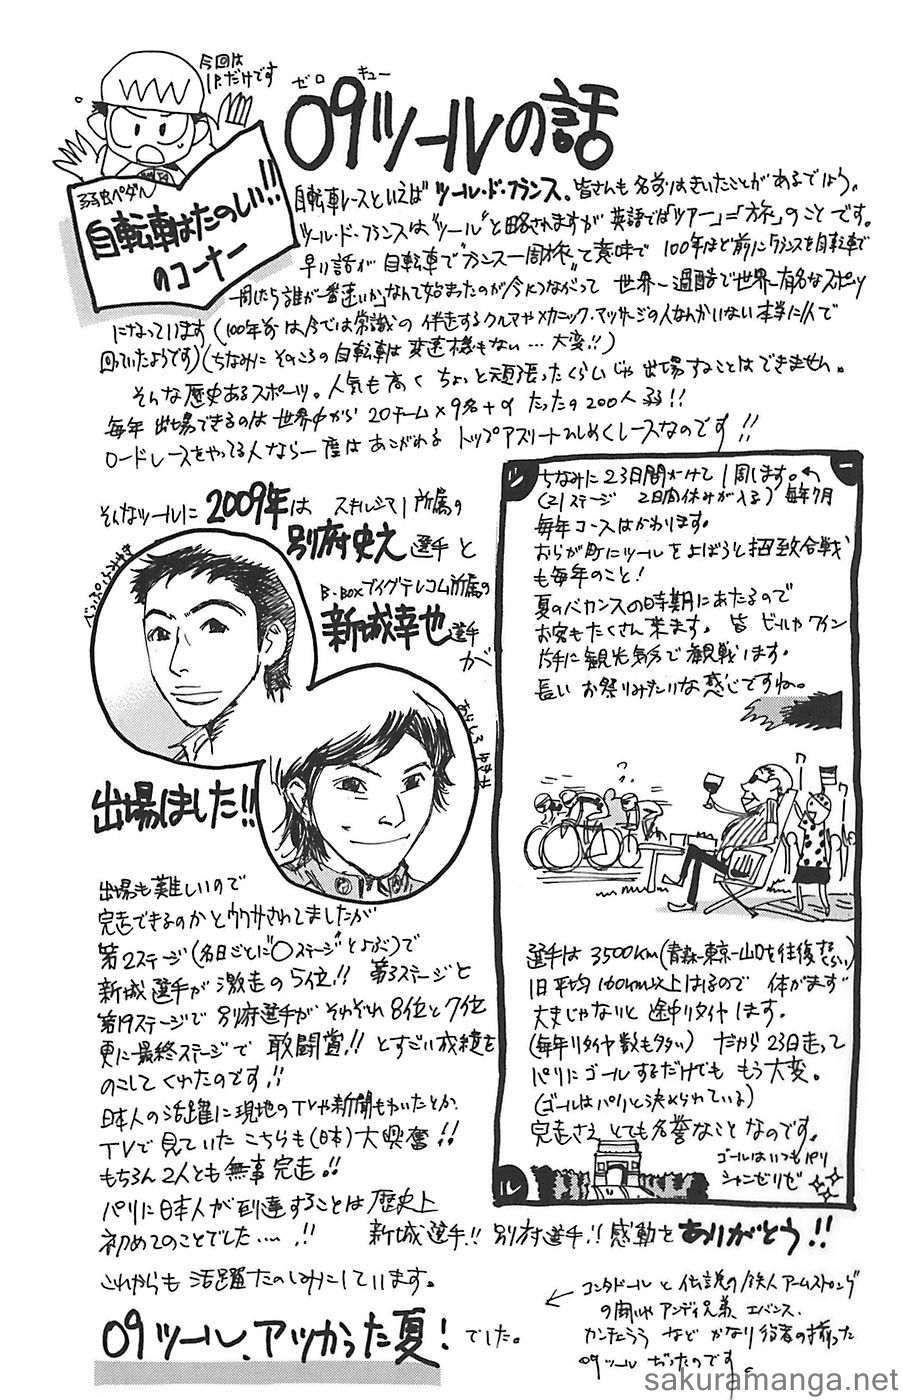 今回は
1P.だけです
弱虫ペダル
自転車はたのしい!!
のコーナー
ゼロ キュー
09ツールの話
自転車レースといえば"ツール・ド・フランス"、皆さんも名前はきいたことがあるでしょう。
ツール・ド・フランスは"ツール"と略されますが英語では「ツアー」=「旅」のことです。
早い話が自転車で"フランス一周旅"って意味で 100年ほど前にフランスを自転車で
一周したら誰が一番速いか」なんて始まったのが今につながって 世界一過酷で世界一有名なスポーツ
になっています(100年前は今では常識の伴走するクルマやメカニック、マッサージの人なんかいない本当に1人で
回っていたようです)(ちなみにそのころの自転車は変速機もない…大変!!)
そんな歴史あるスポーツ。人気も高く ちょっと頑張ったくらいじゃ出場することはできません。
毎年 出場できるのは世界中から 20チーム×9名+α たったの200人弱!!
ロードレースをやってる人なら一度はあこがれる トップアスリートひしめくレースなのです!!
そんなツールに 2009年は スキル・シマノ所属の
別府史之選手と
べっぷ・ふみゆき
B・boxブイグテレコム所属の
新城幸也選手
が
あらしろ ゆきや
出場しました!!
出場も難しいので
完走できるのかとウワサされてましたが
第2ステージ(各日ごとに"○ステージ"とよぶ)で
新城選手が激走の5位!! 第3ステージと
第19ステージで 別府選手が それぞれ8位と7位
更に最終ステージで 敢闘賞!! とすごい成績を
のこしてくれたのです!!
日本人の活躍に現地のTVや新聞もわいたとか、
TVで見ていた こちらも(日本)大興奮!!
もちろん2人とも無事完走!!
パリに日本人が到達することは歴史上
初めてのことでした….!!
新城選手!! 別府選手!! 感動をありがとう!!
これからも活躍たのしみにしています。
09ツール、アツかった夏! でした。
ツ
ー
ル
ちなみに23日間かけて1周します。
(21ステージ 2日間休みが入る) 毎年7月
毎年コースはかわります。
おらが町にツールをよぼうと招致合戦
も毎年のこと!
夏のバカンスの時期にあたるので
お客もたくさん来ます。皆 ビールかワイン
片手に観光気分で観戦します。
長い お祭りみたいな感じですね。
選手は 3500km(青森-東京-山口を往復ぐらい)
1日平均160km以上はしるので 体がまず
丈夫じゃないと途中リタイヤします。
(毎年リタイヤ数も多い) だから23日走って
パリにゴールするだけでも もう大変。
(ゴールはパリと決められている)
完走さえ とても名誉なことなのです。
ゴールはいつもパリ
シャンゼリゼ
← コンタドールと伝説の鉄人アームストロング
アンディ兄弟、エバンス、
カンチェラーラなど かなり役者の揃った
09ツールだったのです。
sakuramanga.net